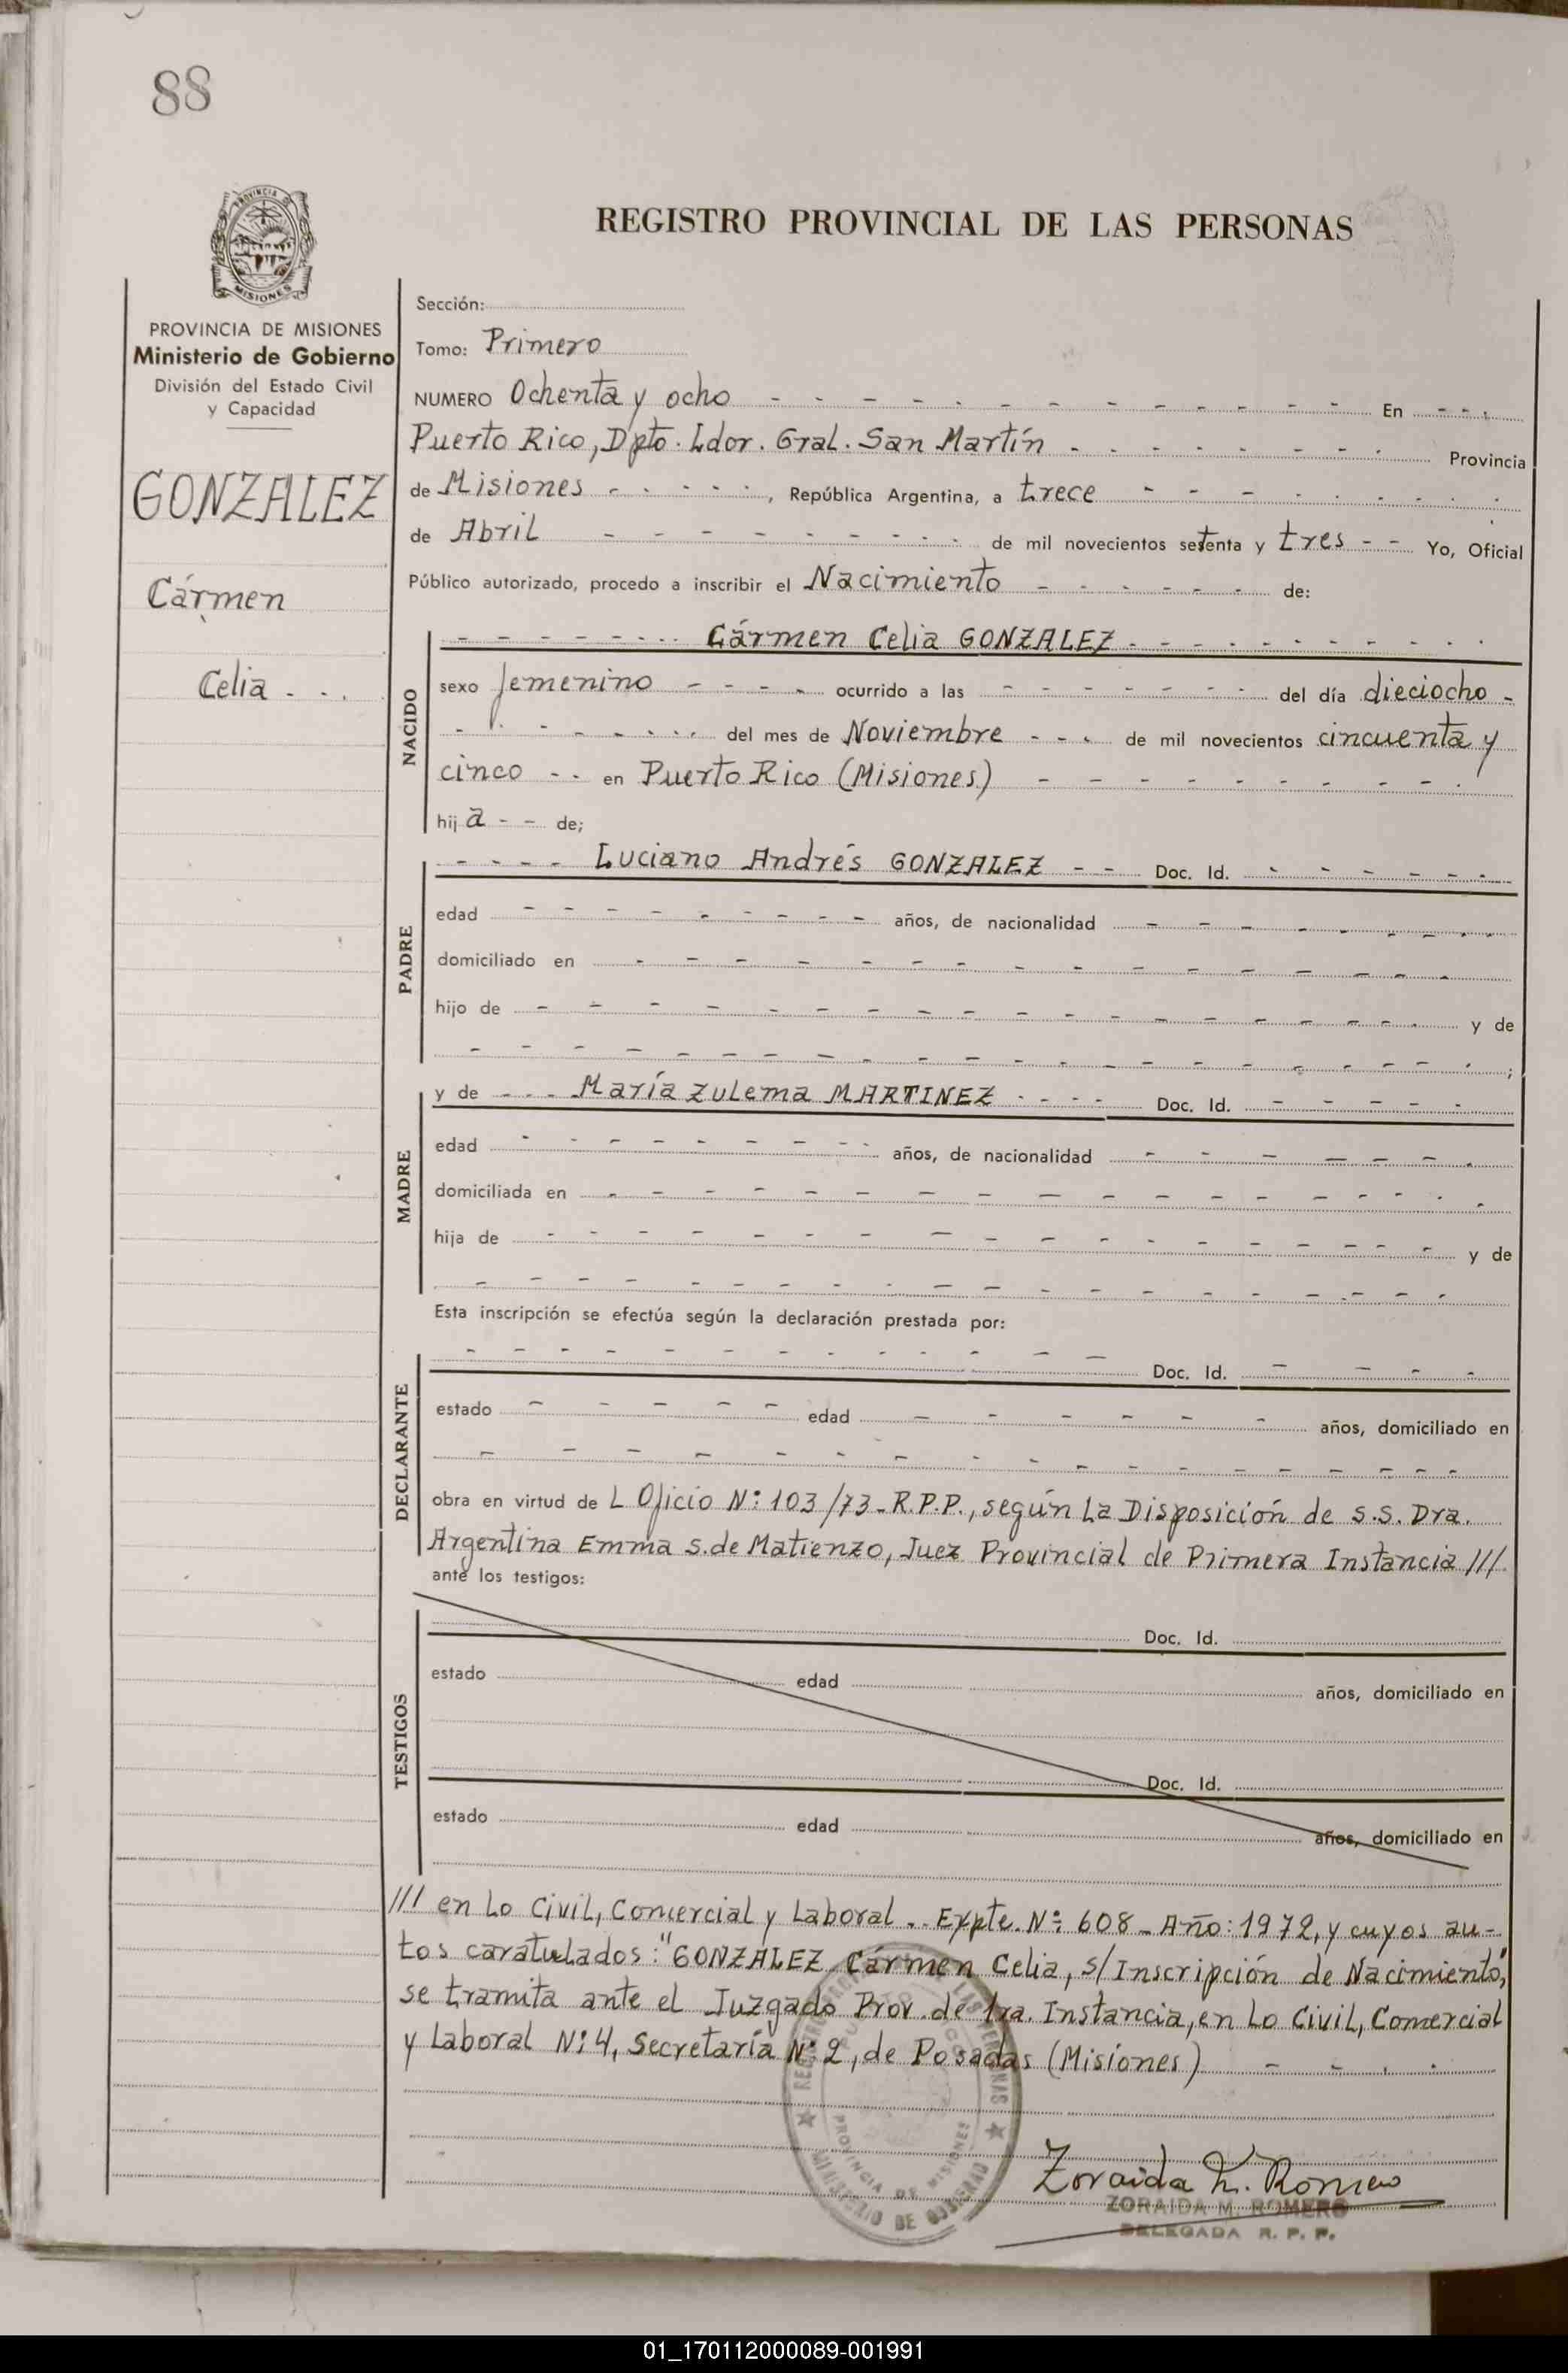 88
REGISTRO PROVINCIAL DE LAS PERSONAS
PROVINCIA
MISIONES
PROVINCIA DE MISIONES
Ministerio de Gobierno
División del Estado Civil
y Capacidad
GONZALEZ
Cármen
Celia - - .
Sección:
Tomo: Primero
NUMERO Ochenta y ocho - - - - - - - - - - - - - En - - - .
Puerto Rico, Dpto. Ldor. Gral. San Martín - - - - - - - Provincia
de Misiones - - - - - -, República Argentina, a trece - - - - - - - -
de Abril - - - - - - - - - - de mil novecientos setenta y tres - - Yo, Oficial
Público autorizado, procedo a inscribir el Nacimiento - - - - - - de:
- - - - - - - - Cármen Celia GONZALEZ - - - - - - - - -
sexo femenino - - - - ocurrido a las - - - - - - - del día dieciocho -
- - - - - - - - del mes de Noviembre - - - de mil novecientos cincuenta y
cinco - - en Puerto Rico (Misiones) - - - - - - - - - -
hij a - - de;
- - - - Luciano Andrés GONZALEZ - - Doc. Id. - - - - - -
edad - - - - - - - - - años, de nacionalidad - - - - - - - -
domiciliado en - - - - - - - - - - - - - - -
hijo de - - - - - - - - - - - - - - - - - y de
- - - - - - - - - - - - - - - - - - - - ;
y de - - - María Zulema MARTINEZ - - - - Doc. Id. - - - - -
edad - - - - - - - - - años, de nacionalidad - - - - - - -
domiciliada en - - - - - - - - - - - - - - - -
hija de - - - - - - - - - - - - - - - - y de
- - - - - - - - - - - - - - - - - -
Esta inscripción se efectúa según la declaración prestada por:
- - - - - - - - - - - - Doc. Id. - - - -
estado - - - - - edad - - - - - - años, domiciliado en
- - - - - - - - - - - - - - - - -
obra en virtud de L Oficio Nº: 103/73-R.P.P., según La Disposición de S.S. Dra.
Argentina Emma S. de Matienzo, Juez Provincial de Primera Instancia ///
ante los testigos:
Doc. Id.
estado edad años, domiciliado en
Doc. Id.
estado edad años, domiciliado en
/// en Lo Civil, Comercial y Laboral.- Expte. Nº: 608-Año: 1972, y cuyos au-
tos caratulados: "GONZALEZ Cármen Celia, s/Inscripción de Nacimiento",
se tramita ante el Juzgado Prov. de 1ra. Instancia, en Lo Civil, Comercial
y Laboral Nº 4, Secretaría Nº 2, de Posadas (Misiones) - - - -
NACIDO
PADRE
MADRE
DECLARANTE
TESTIGOS
PROVINCIA DE MISIONES
MINISTERIO DE GOBIERNO
Zoraida M. Romero
ZORAIDA M. ROMERO
DELEGADA R. P. P.
01_170112000089-001991